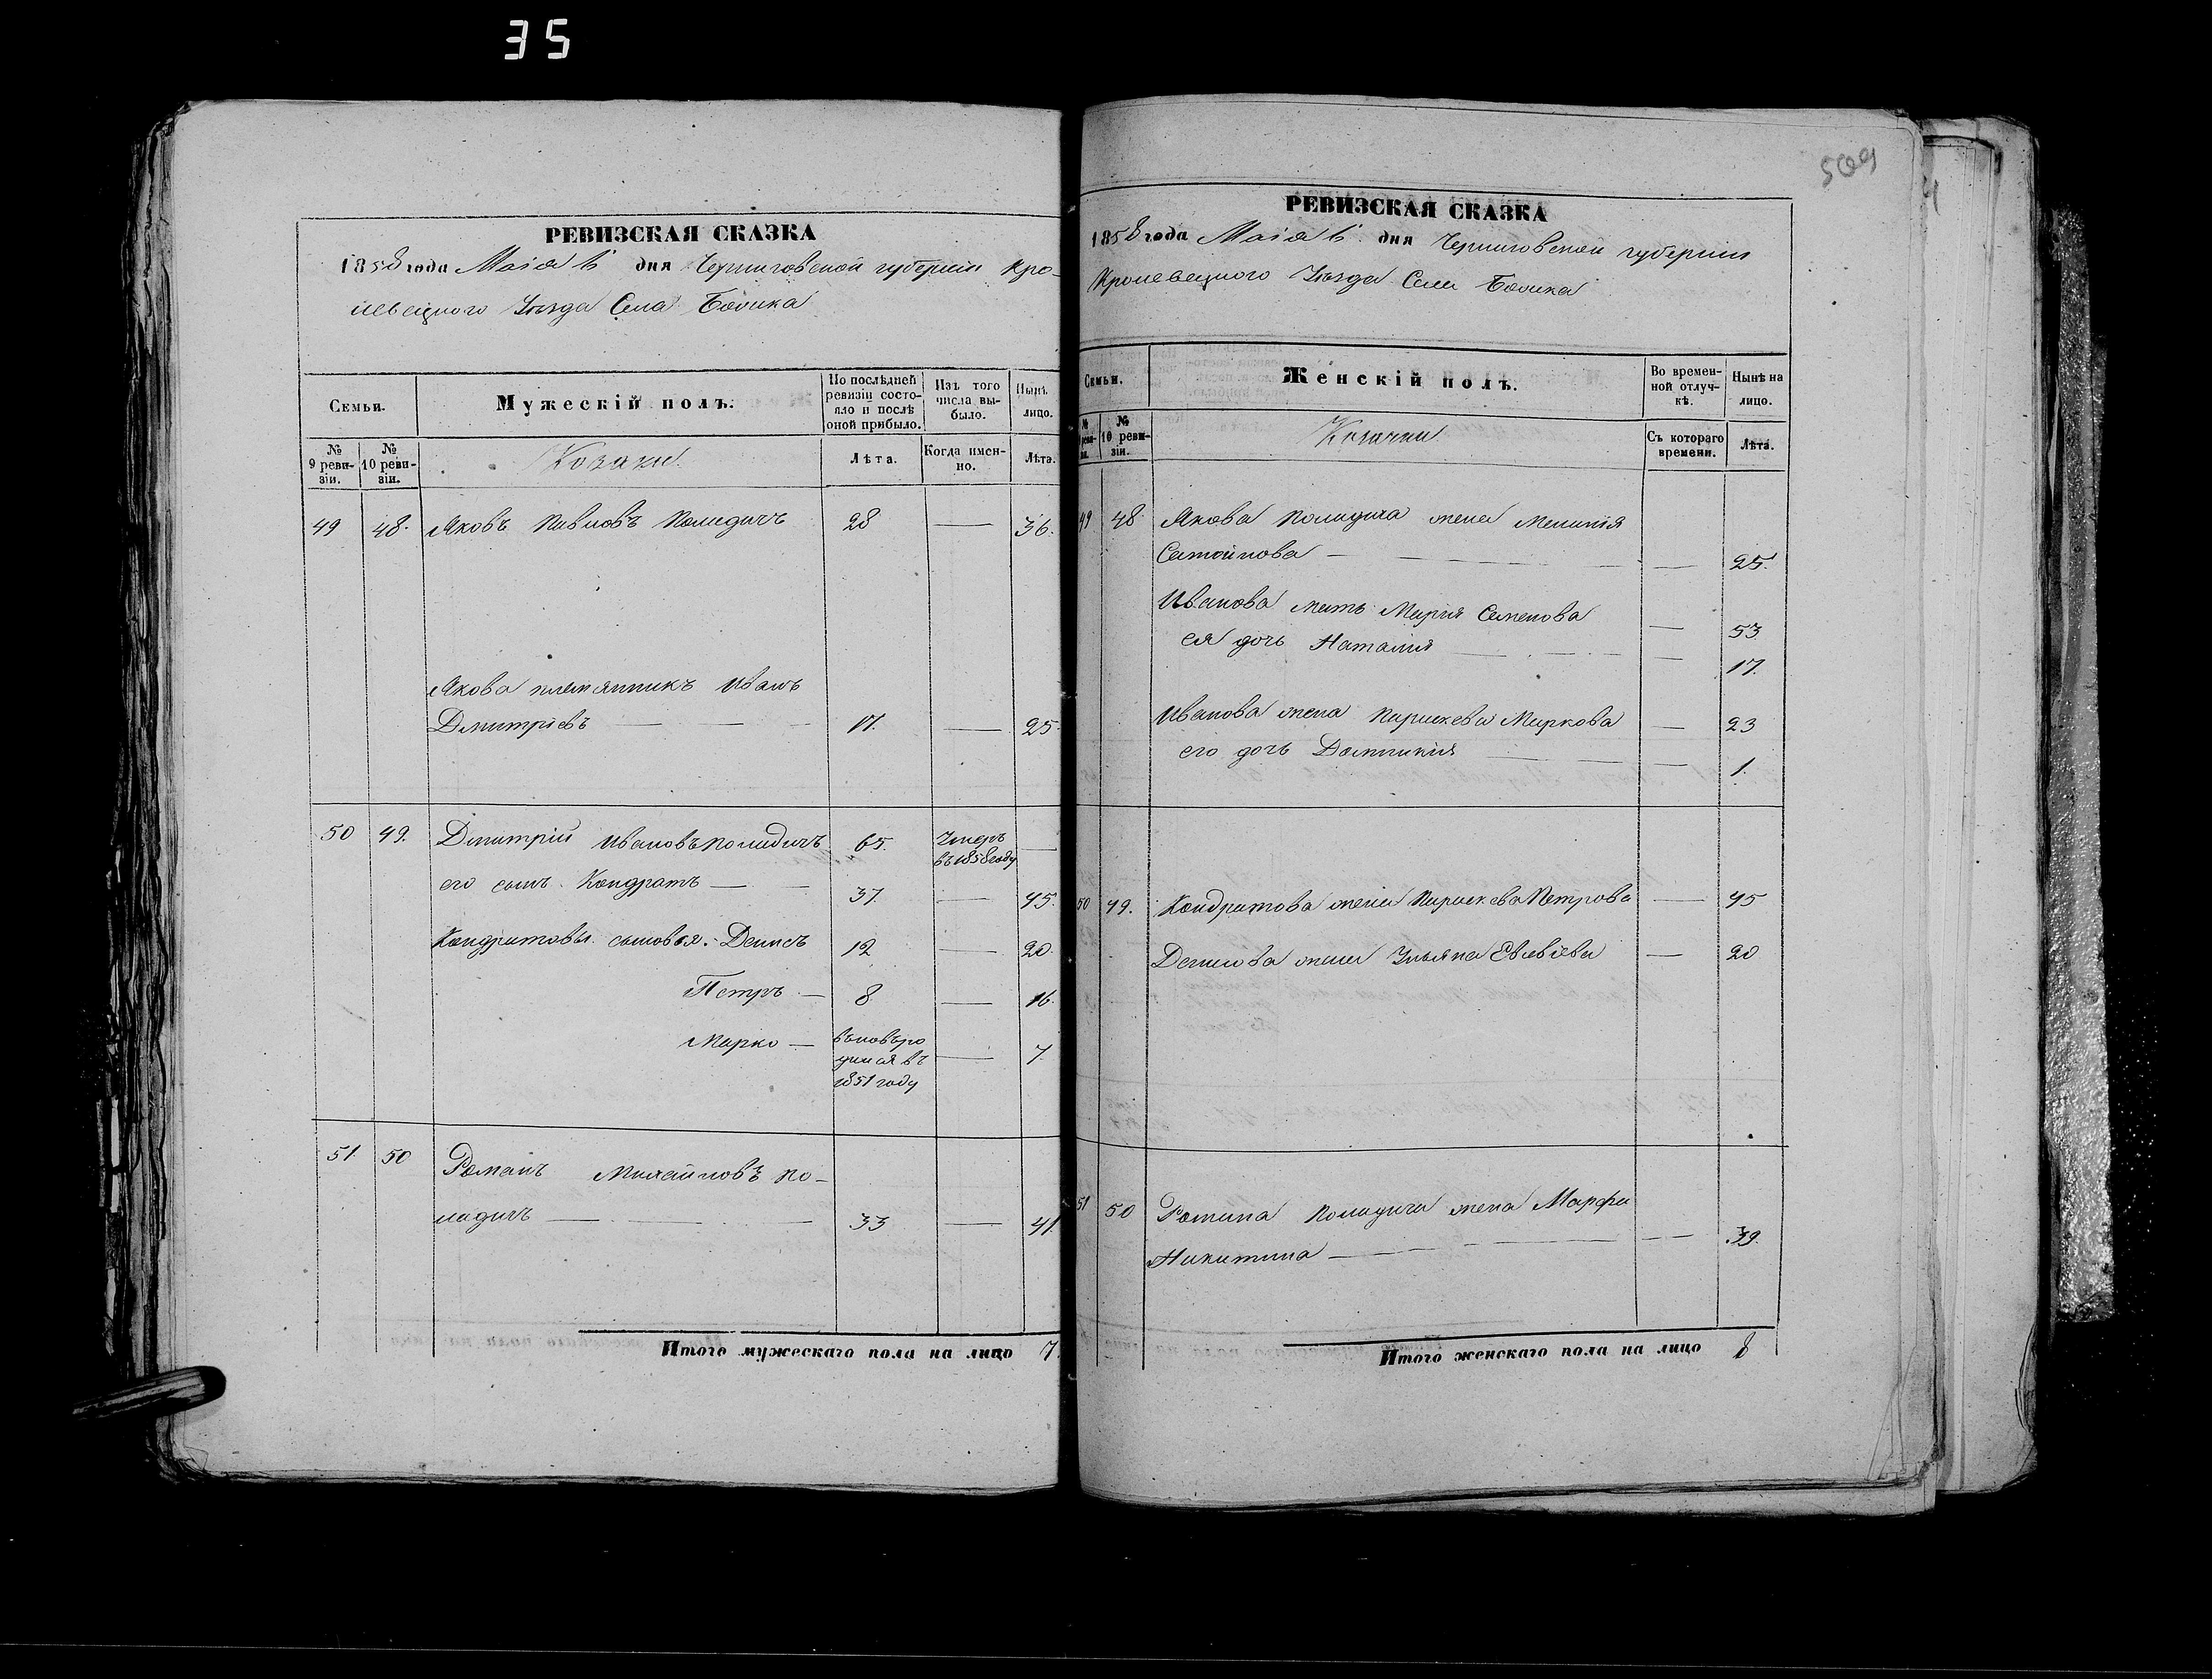 35
РЕВИЗСКАЯ СКАЗКА
1858 года Маія 6 дня Черниговской губерніи Кро-
левецкого Уѣзда Села
Семьи.
Мужескій полъ.
По послѣдней ревизіи состояло и послѣ оной прибыло.
Изъ того числа выбыло.
Нынѣ лицо.
№ 9 ревизіи.
№ 10 ревизіи.
Козаки
Лѣта.
Когда именно.
Лѣта.
49 48. Яковъ Павловъ Поладичъ 28 — 36.
Якова племянникъ Иванъ
Дмитріевъ — — — 17. — 25
50 49. Дмитрій Ивановъ Поладичъ 65. Умеръ —
въ 1858 году
его сынъ Кондратъ — — 37. — 45.
Кондратовы сыновья: Денисъ 12 — 20.
Петръ — 8 — 16.
Марко — вновь ро — 7.
дился въ
1851 году
51 50 Романъ Михайловъ По-
ладичъ — — — 33 — 41.
Итого мужескаго пола на лицо 7.
509
РЕВИЗСКАЯ СКАЗКА
1858 года Маія 6 дня Черниговской губерніи
Кролевецкого Уѣзда Села
Семьи.
Женскій полъ.
Во временной отлучкѣ.
Нынѣ на лицо.
№ 10 ревизіи.
Козачки
Съ котораго времени.
Лѣта.
49 48 Якова Поладича жена Меланія
Самойлова — — — — 25.
Иванова мать Марія Семенова — 53
ея дочь Наталия — — — 17.
Иванова жена Параскева Маркова — 23
его дочь Домникія — — — 1.
50 49. Кондратова жена Параскева Петрова — 45
Денисова жена Ульяна — 20
51 50 Романа Поладича жена Марфа
Никитина — — — — 39.
Итого женскаго пола на лицо 8